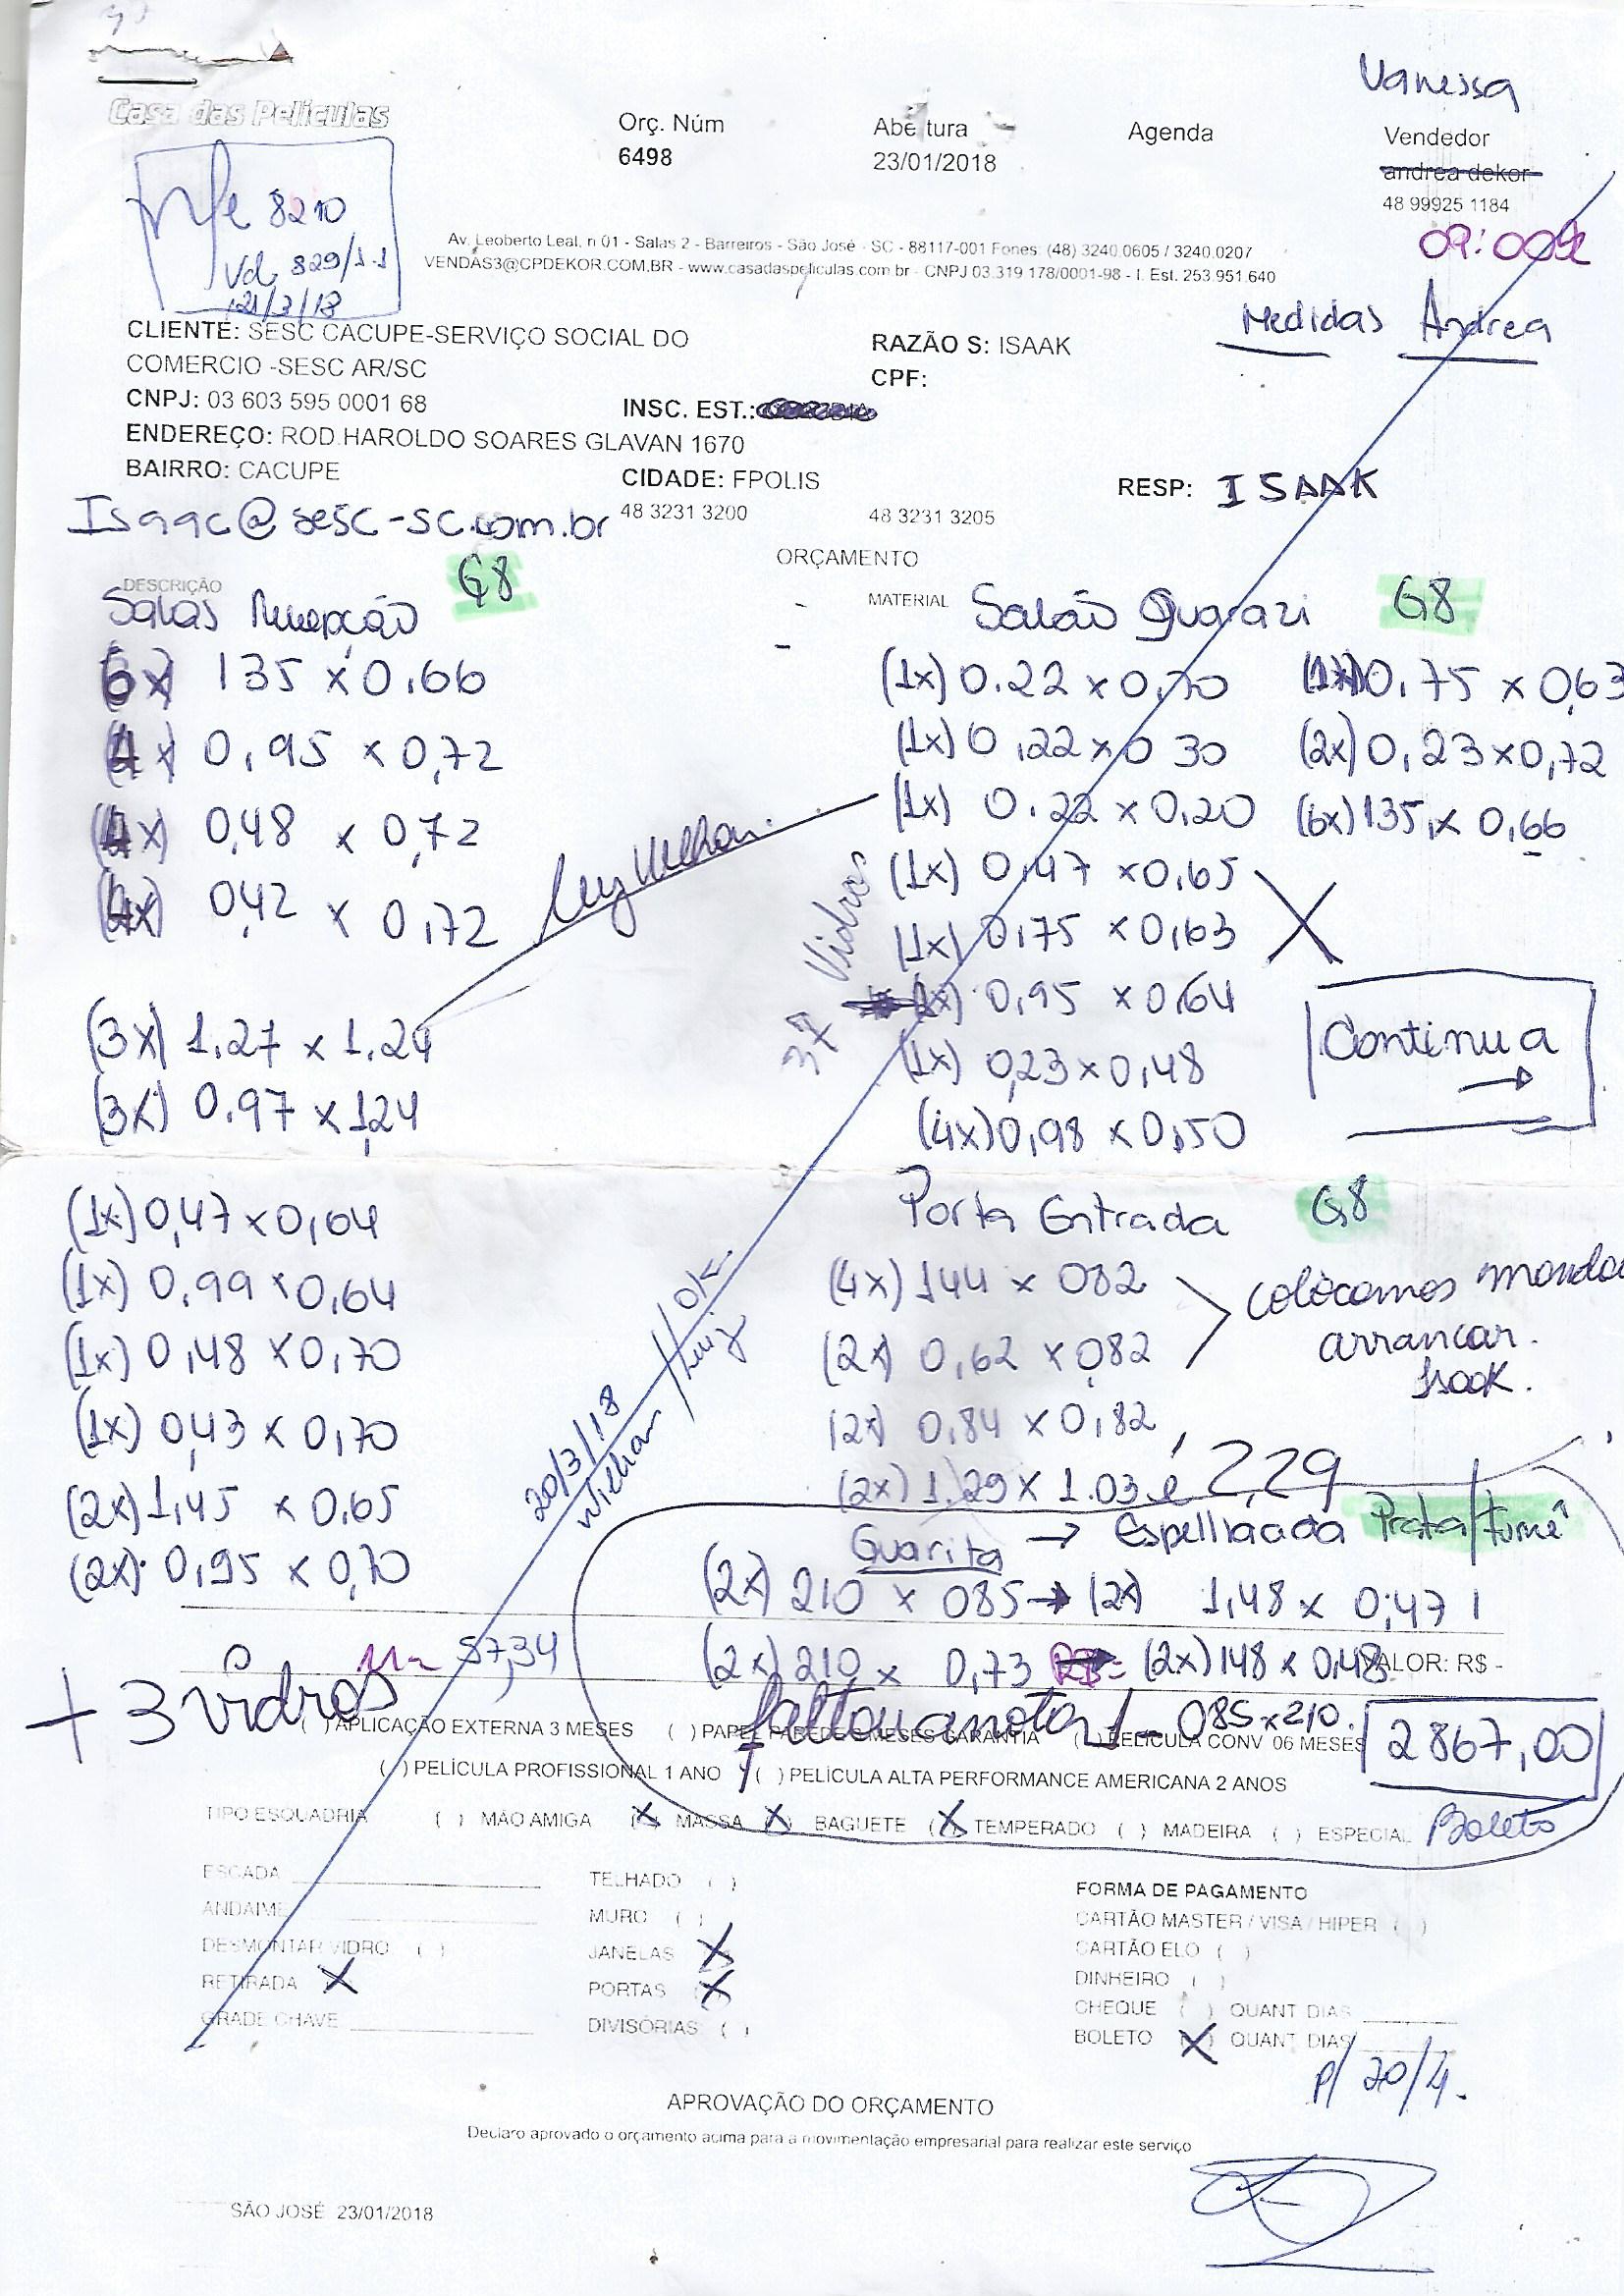 Vanessa
Casa das Películas
Orç. Núm
Abertura
Agenda
Vendedor
6498
23/01/2018
andrea dekor
48 99925 1184
Nfe 8210
Vd 829/1-1
21/3/18
09:00
Av. Leoberto Leal, n 01 - Salas 2 - Barreiros - São José - SC - 88117-001 Fones: (48) 3240.0605 / 3240.0207
VENDAS3@CPDEKOR.COM.BR - www.casadaspeliculas.com.br - CNPJ 03.319 178/0001-98 - I. Est. 253.951.640
Medidas Andrea
CLIENTE: SESC CACUPE-SERVIÇO SOCIAL DO
COMERCIO -SESC AR/SC
RAZÃO S: ISAAK
CPF:
CNPJ: 03 603 595 0001 68
INSC. EST.:
ENDEREÇO: ROD.HAROLDO SOARES GLAVAN 1670
BAIRRO: CACUPE
CIDADE: FPOLIS
RESP: ISAAK
Isaac@sesc-sc.com.br
48 3231 3200
48 3231 3205
ORÇAMENTO
DESCRIÇÃO
G8
Salas Recepção
6x) 135 x 0.66
(4x) 0,95 x 0,72
(4x) 0,48 x 0,72
(4x) 0,42 x 0,72
(3x) 1.27 x 1.24
(3x) 0.97 x 1,24
(1x) 0,47 x 0,64
(1x) 0,99 x 0,64
(1x) 0,48 x 0,70
(1x) 0,43 x 0,70
(2x) 1,45 x 0,65
(2x) 0,95 x 0,70
MATERIAL
Salão Guarazi G8
(1x) 0.22 x 0,70
(1x) 0,22 x 0 30
(1x) 0.22 x 0,20
(1x) 0,47 x 0,65
(1x) 0,75 x 0,63
(2x) 0,95 x 0,64
(1x) 0,23 x 0,48
(4x) 0,98 x 0,50
0.75 x 0,63
(2x) 0,23 x 0,72
(6x) 135 x 0,66
37 Vidros
Continua
→
Porta Entrada G8
(4x) 144 x 082
(2x) 0,62 x 082
(2x) 0,84 x 0,82
(2x) 1.29 x 1.03 e 2,29
colocamos
arrancar.
Isaak.
20/3/18
Willian / Luiz
OK
Guarita → Espelhada Prata/fumê
(2x) 210 x 085 → (2x) 1,48 x 0,47
(2x) 210 x 0,73 (2x) 148 x 0,48
VALOR: R$ -
57,34
+ 3 vidros
faltou anotar 1 - 085 x 210.
2867,00
Boleto
( ) APLICAÇÃO EXTERNA 3 MESES ( ) PAPEL PAREDE MESES GARANTIA ( ) PELICULA CONV 06 MESES
( ) PELÍCULA PROFISSIONAL 1 ANO ( ) PELÍCULA ALTA PERFORMANCE AMERICANA 2 ANOS
TIPO ESQUADRIA ( ) MÃO AMIGA (X) MASSA (X) BAGUETE (X) TEMPERADO ( ) MADEIRA ( ) ESPECIAL
ESCADA
ANDAIME
DESMONTAR VIDRO ( )
RETIRADA X
GRADE CHAVE
TELHADO ( )
MURO ( )
JANELAS X
PORTAS X
DIVISÓRIAS ( )
FORMA DE PAGAMENTO
CARTÃO MASTER / VISA / HIPER ( )
CARTÃO ELO ( )
DINHEIRO ( )
CHEQUE ( ) QUANT DIAS
BOLETO (X) QUANT DIAS
p/ 20/4.
APROVAÇÃO DO ORÇAMENTO
Declaro aprovado o orçamento acima para a movimentação empresarial para realizar este serviço
SÃO JOSÉ 23/01/2018